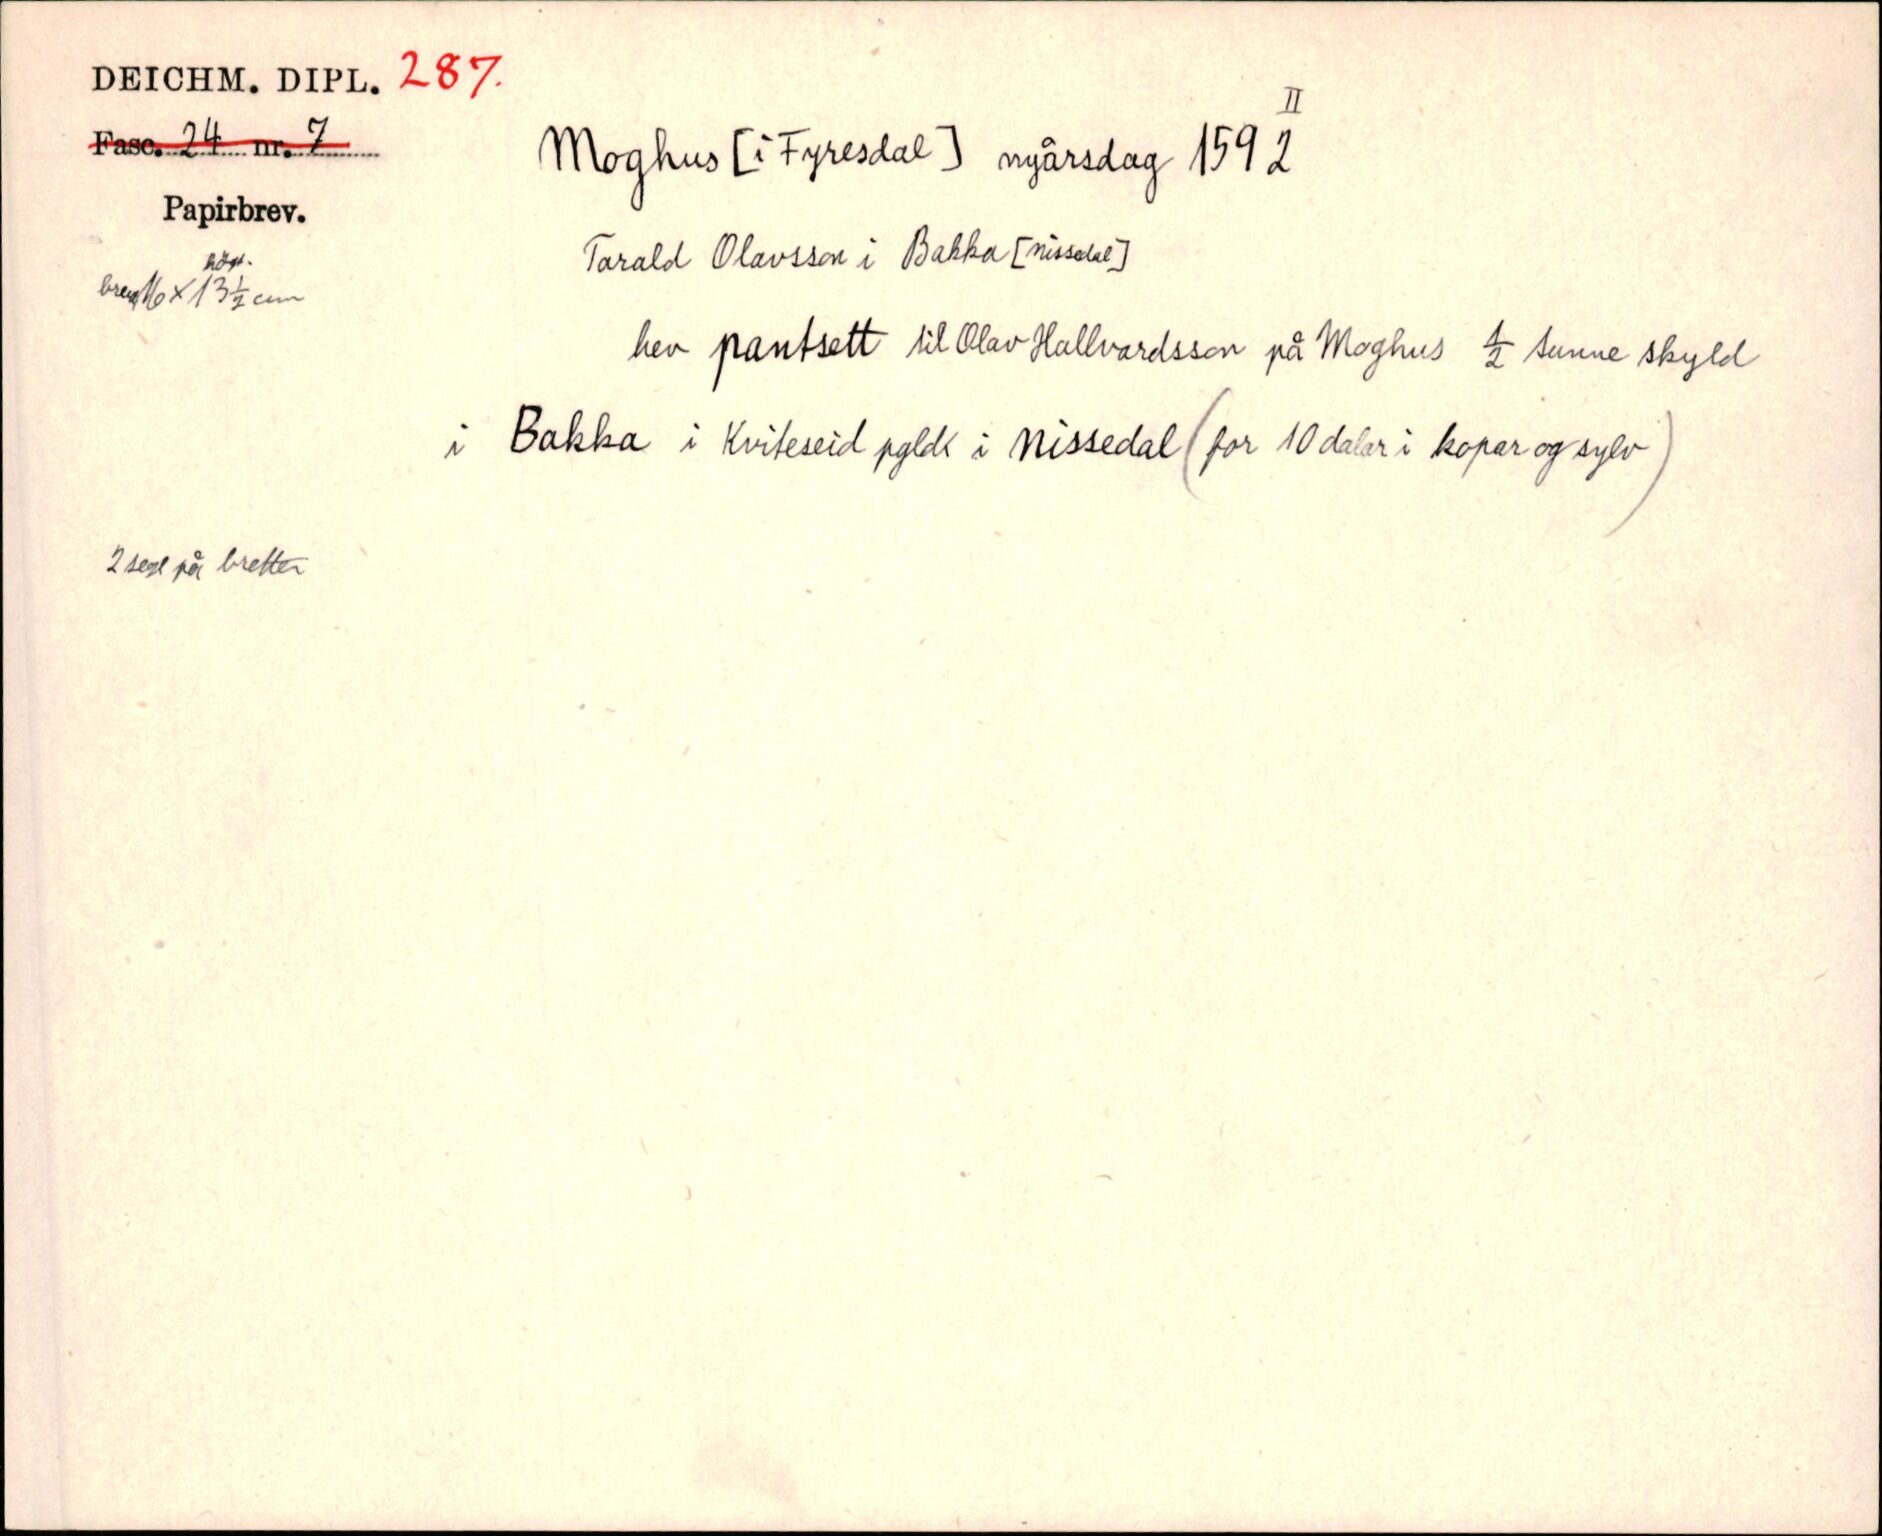 DEICHM. DIPL. 287.
Fasc. 24 nr. 7
Papirbrev.
högt.
16 × 13 1/2 cm
II
Moghus [i Fyresdal] nyårsdag 1592
Tarald Olavsson i Bakka [Nissedal]
hev pantsett til Olav Hallvardsson på Moghus 1/2 tunne skyld
i Bakka i Kviteseid pgldk i Nissedal (for 10 dalar i kopar og sylv)
2 segl på bretter